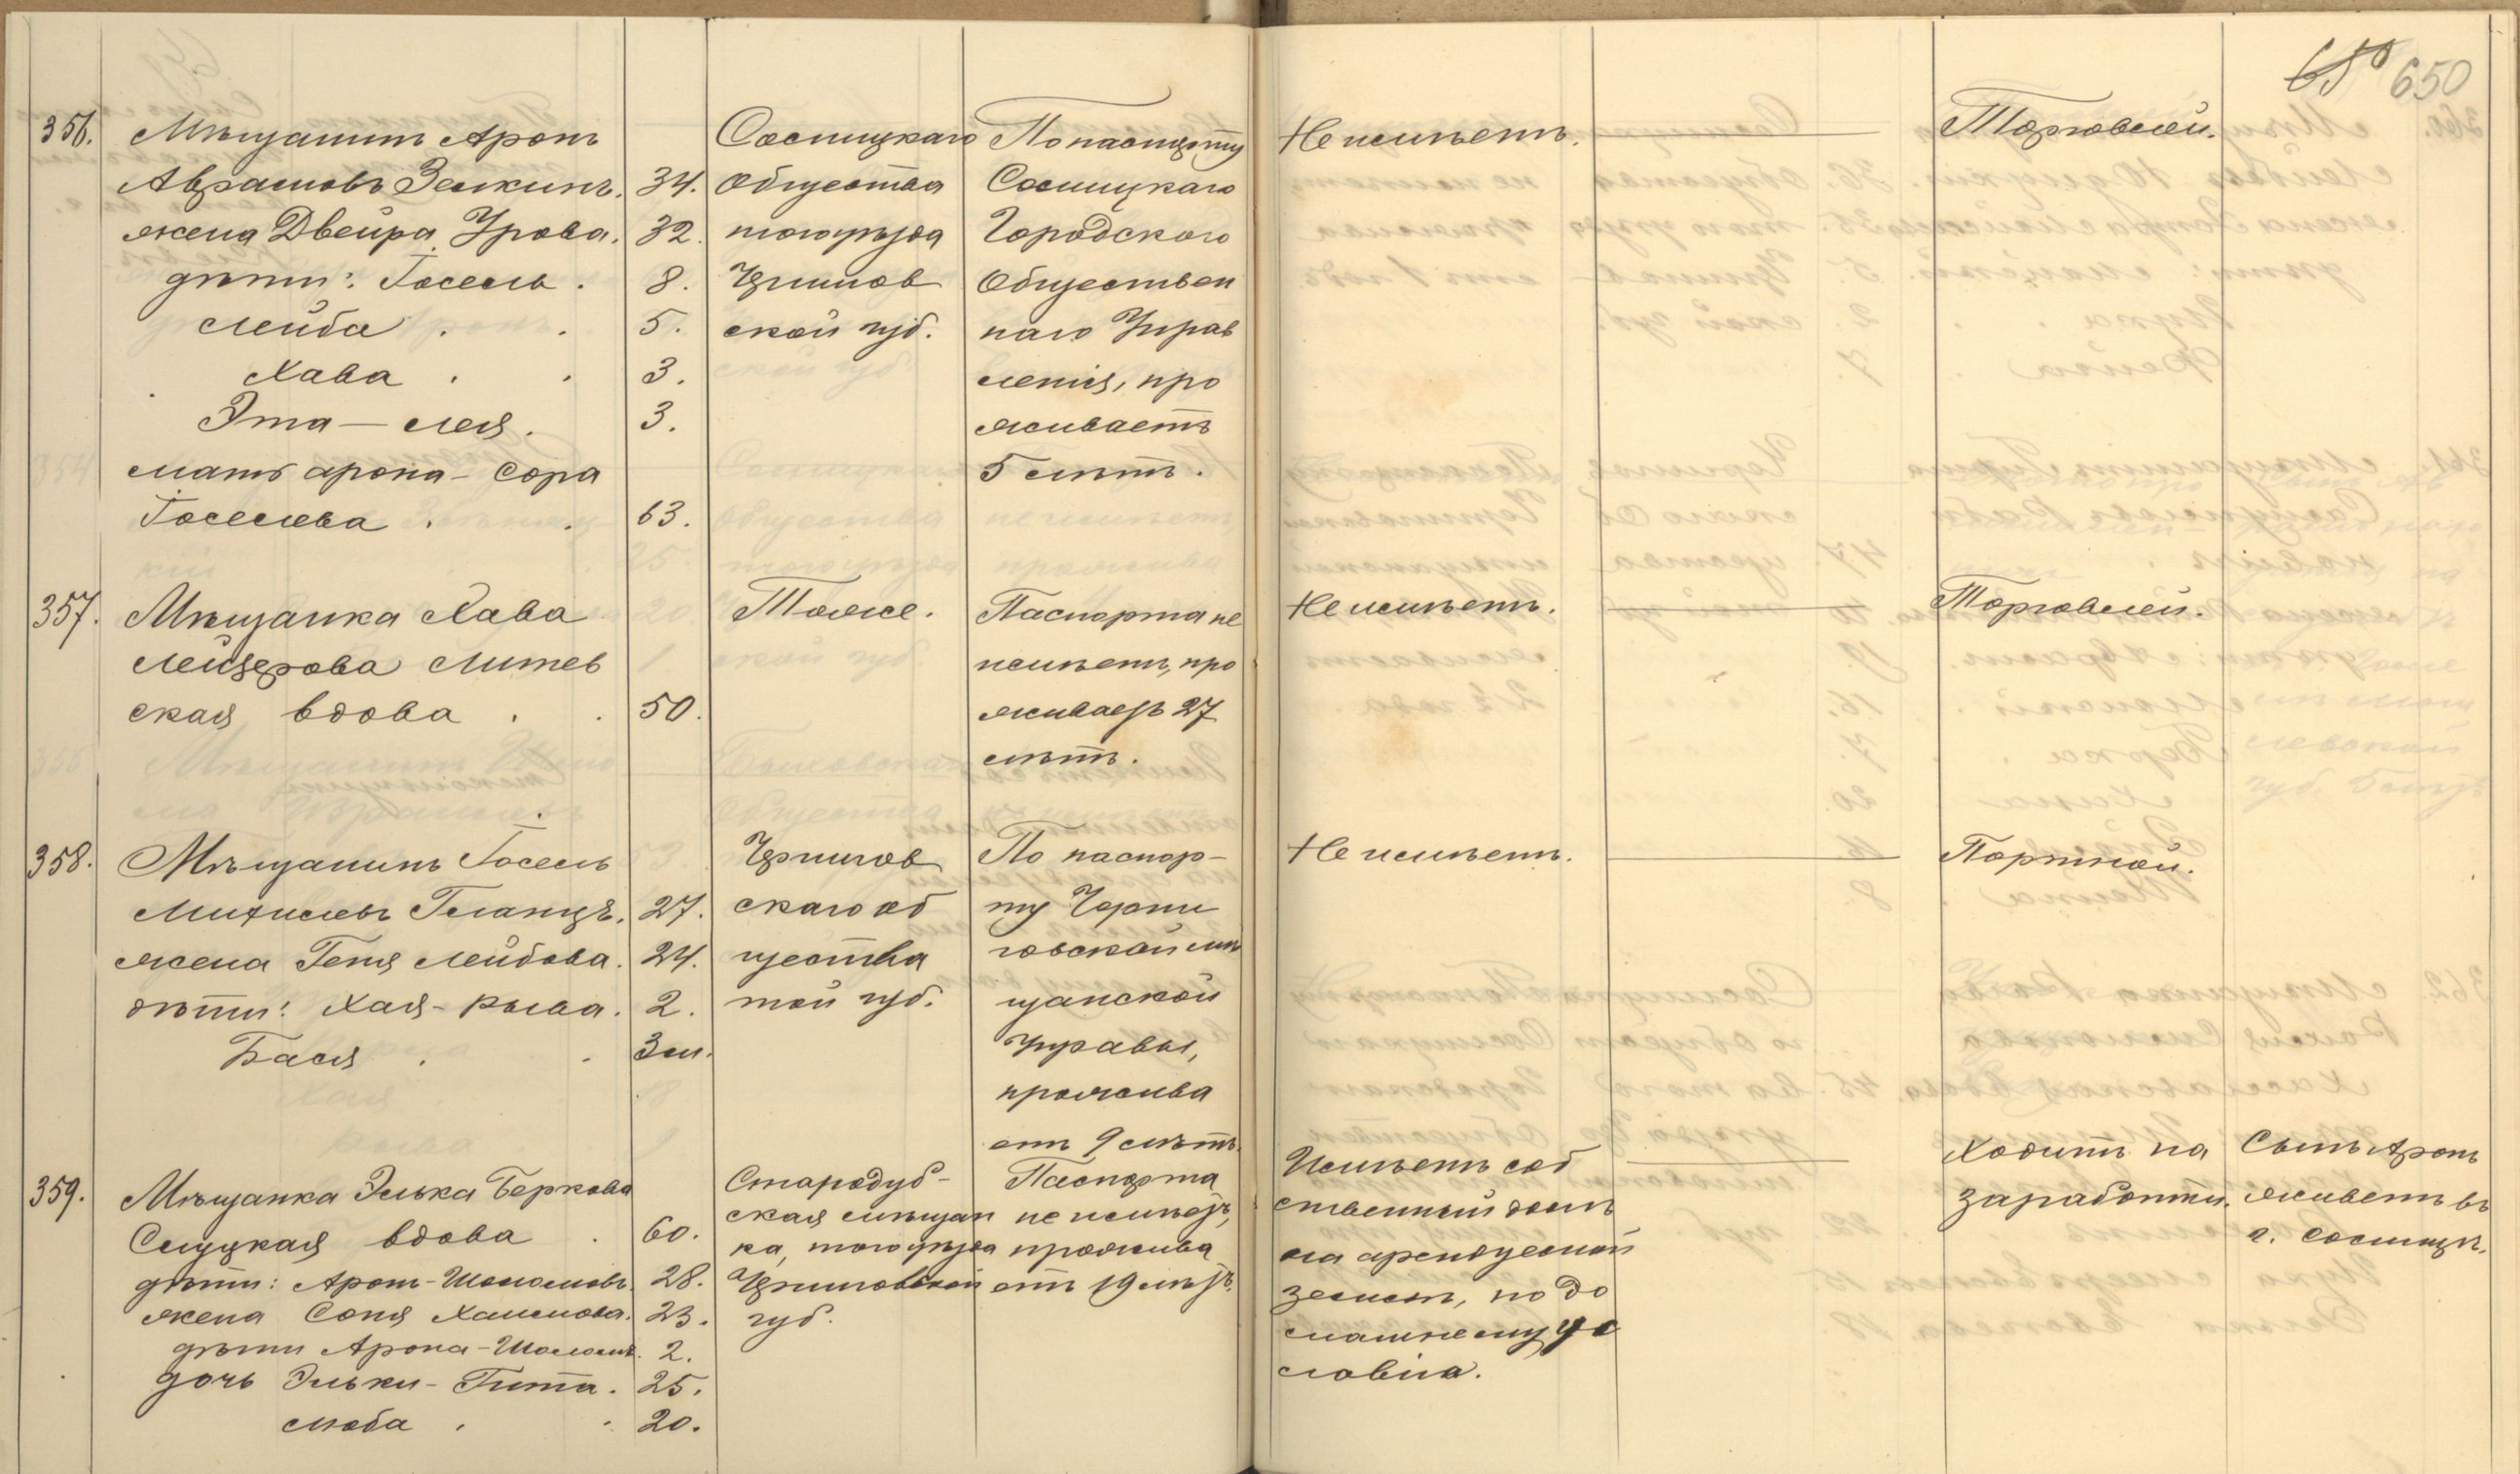 650
356.
Мѣщанинъ Аронъ
Аврамовъ Зелкинъ. 34.
жена Двейра Урова. 32.
дѣти: Іосель. 8.
Лейба. 5.
Хава. 3.
Эта-Лея. 3.
мать Арона - Сора
Іоселева. 63.
Сосницкаго
Общества
того уѣзда
Чернигов
ской губ.
По паспорту
Сосницкаго
Городского
Обществен
наго Управ
ленія, про
живаетъ
5 лѣтъ.
Не имѣетъ.
Торговлей.
357.
Мѣщанка Хава
Лейзерова Литев
ская вдова. 50.
Тоже.
Паспорта не
имѣетъ, про
живаетъ 27
лѣтъ.
Не имѣетъ.
Торговлей.
358.
Мѣщанинъ Іосель
Гланцъ. 27.
жена Геня Лейбова. 24.
дѣти: Хая-Рыва. 2.
Бася. 3 м.
Чернигов
скаго об
щества
той губ.
По паспор-
ту Черни
говской мѣ
щанской
Управы,
прожива
етъ 9 лѣтъ.
Не имѣетъ.
Портной.
359.
Мѣщанка Элька Беркова
Слуцкая вдова. 60.
дѣти: Аронъ-Шоломовъ. 28.
жена Соня Хаимова. 23.
дѣти Арона-Шоломъ. 2.
дочь Эльки-Гита. 25.
Люба. 20.
Стародуб-
ская мѣщан
ка, того уѣзда
Черниговской
губ.
Паспорта
не имѣетъ,
прожива
етъ 19 лѣтъ.
Имѣетъ соб
ственный домъ
на арендуемой
землѣ, по до
машнему ус
ловію.
Ходитъ на
заработки.
Сынъ Аронъ
живетъ въ
г. Сосницѣ.